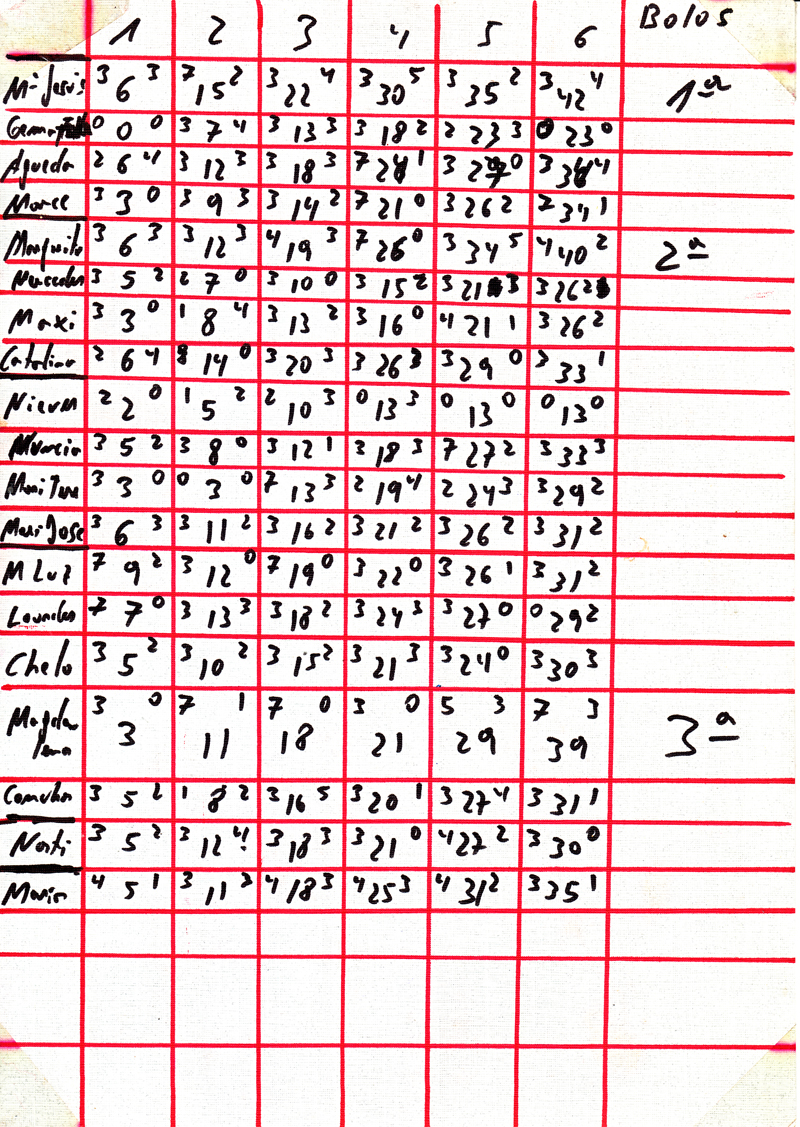 1 2 3 4 5 6 Bolos
Mª Jesus 3 6 3 7 15 2 3 22 4 3 30 5 3 35 2 3 42 4 1ª
Gema 0 0 0 3 7 4 3 13 3 3 18 2 2 23 3 0 23 0
Agueda 2 6 4 3 12 3 3 18 3 7 1 3 0 3 4
Merce 3 3 0 3 9 3 3 14 2 7 21 0 3 26 2 7 34 1
3 6 3 3 12 3 4 19 3 7 26 0 3 34 5 4 40 2 2ª
Mercedes 3 5 2 2 7 0 3 10 0 3 15 2 3 21 3 3 26 2
Maxi 3 3 0 1 8 4 3 13 2 3 16 0 4 21 1 3 26 2
Catalina 2 6 4 8 14 0 3 20 3 3 26 3 3 29 0 3 33 1
Nieves 2 2 0 1 5 2 2 10 3 0 13 3 0 13 0 0 13 0
Murcia 3 5 2 3 8 0 3 12 1 3 18 3 7 27 2 3 33 3
3 3 0 0 3 0 7 13 3 2 19 4 2 24 3 3 29 2
Mari Jose 3 6 3 3 11 2 3 16 2 3 21 2 3 26 2 3 31 2
M Luz 7 9 2 3 12 0 7 19 0 3 22 0 3 26 1 3 31 2
Lourdes 7 7 0 3 13 3 3 18 2 3 24 3 3 27 0 0 29 2
Chelo 3 5 2 3 10 2 3 15 2 3 21 3 3 24 0 3 30 3
3 0 7 1 7 0 3 0 5 3 7 3
Magda
lena 3 11 18 21 29 39 3ª
3 5 2 1 8 2 3 16 5 3 20 1 3 27 4 3 31 1
Nati 3 5 2 3 12 4 3 18 3 3 21 0 4 27 2 3 30 0
Maria 4 5 1 3 11 3 4 18 3 4 25 3 4 31 2 3 35 1